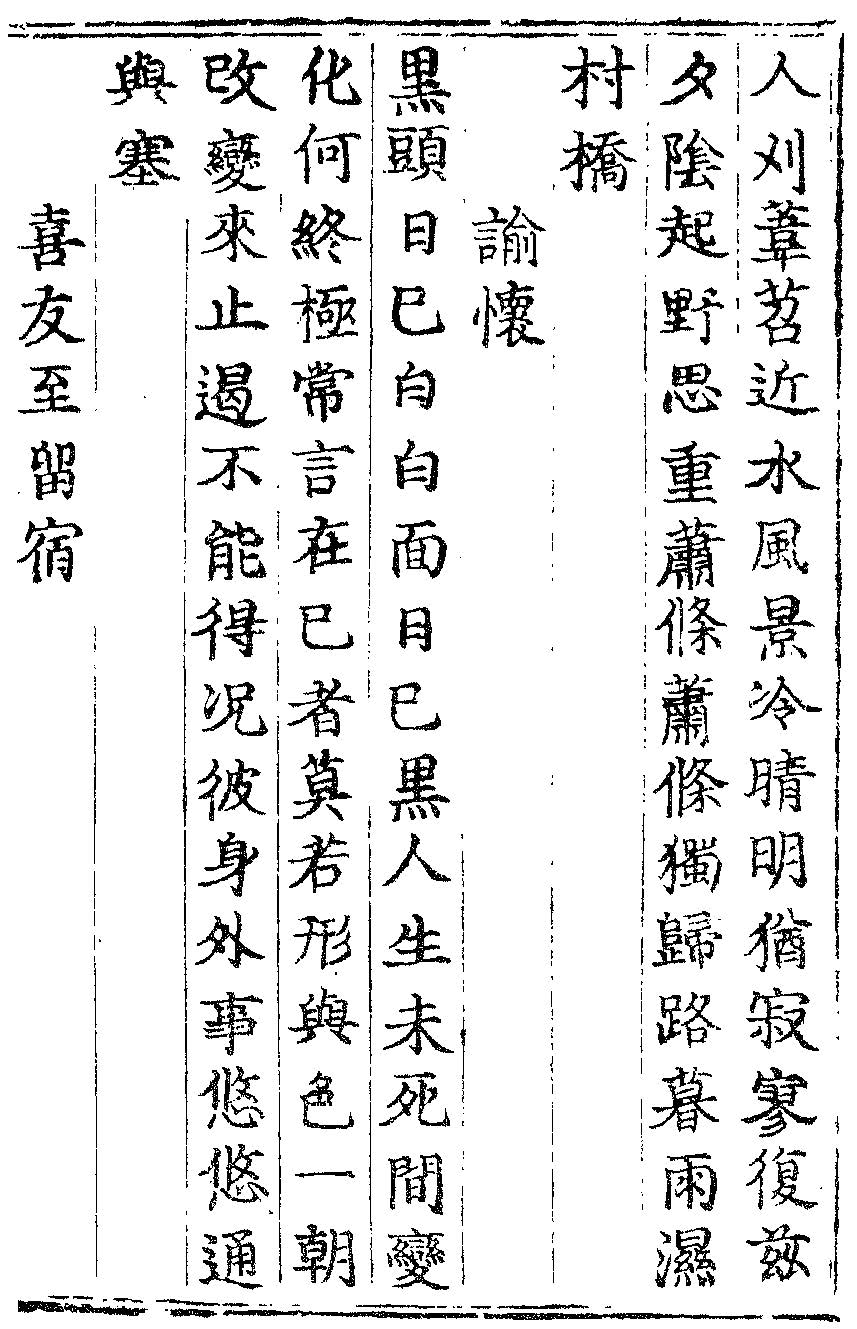 人刈葦苕近水風景冷晴明猶寂寥復兹
夕陰起野思重蕭條蕭條獨歸路暮雨濕
村橋
諭懷
黒頭日已白白面日已黒人生未死間變
化何終極常言在已者莫若形與色一朝
改變來止遏不能得况彼身外事悠悠通
與塞
喜友至留宿